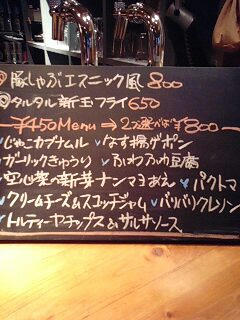 豚しゃぶエスニック風 800
タルタル新玉フライ 650
¥450Menu ⇒ 2つ選べば¥800
じゃこカプサルム なす揚げポン
ガーリックきゅうり ふわふわ豆腐
空心菜の新芽ナンマヨあえ パクトマ
クリームチーズ スコッチジャム バリバリクレソン
トルティーヤチップス サルサソース